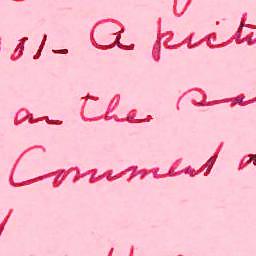 01- A pictu
on the sa
Comment o